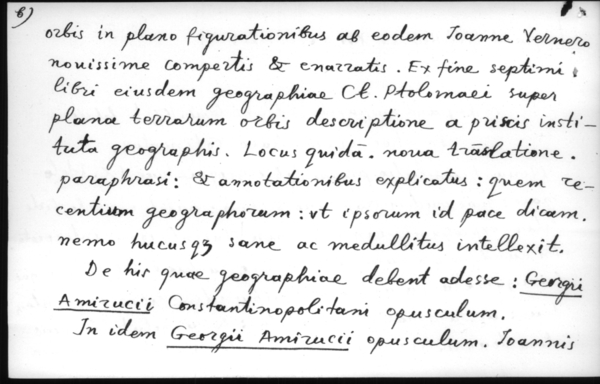 6)
orbis in plano figurationibus ab eodem Ioanne Vernero
nouissime compertis & enarratis. Ex fine septimi
libri eiusdem geographiae Cl. Ptolomaei super
plana terrarum orbis descriptione a priscis insti-
tuta geographis. Locus quidā. noua trāslatione.
paraphrasi: & annotationibus explicatus: quem re-
centium geographorum: vt ipsorum id pace dicam.
nemo hucusqꝫ sane ac medullitus intellexit.
De his quae geographiae debent adesse: Georgii
Amirucii Constantinopolitani opusculum.
In idem Georgii Amirucii opusculum. Ioannis